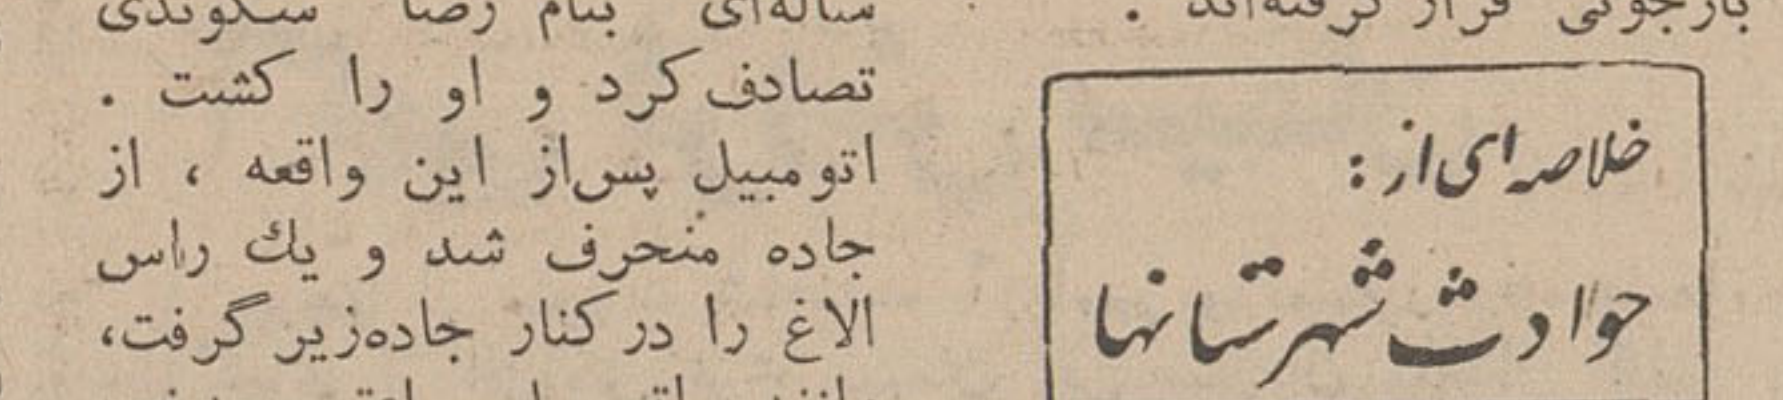 بازجوئی قرار گرفته‌اند .
خلاصه‌ای از :
حوادث شهرستانها
ساله‌ای بنام رضا سگوندی
تصادف کرد و او را کشت .
اتومبیل پس‌از این واقعه ، از
جاده منحرف شد و یك راس
الاغ را در کنار جاده‌زیر گرفت،